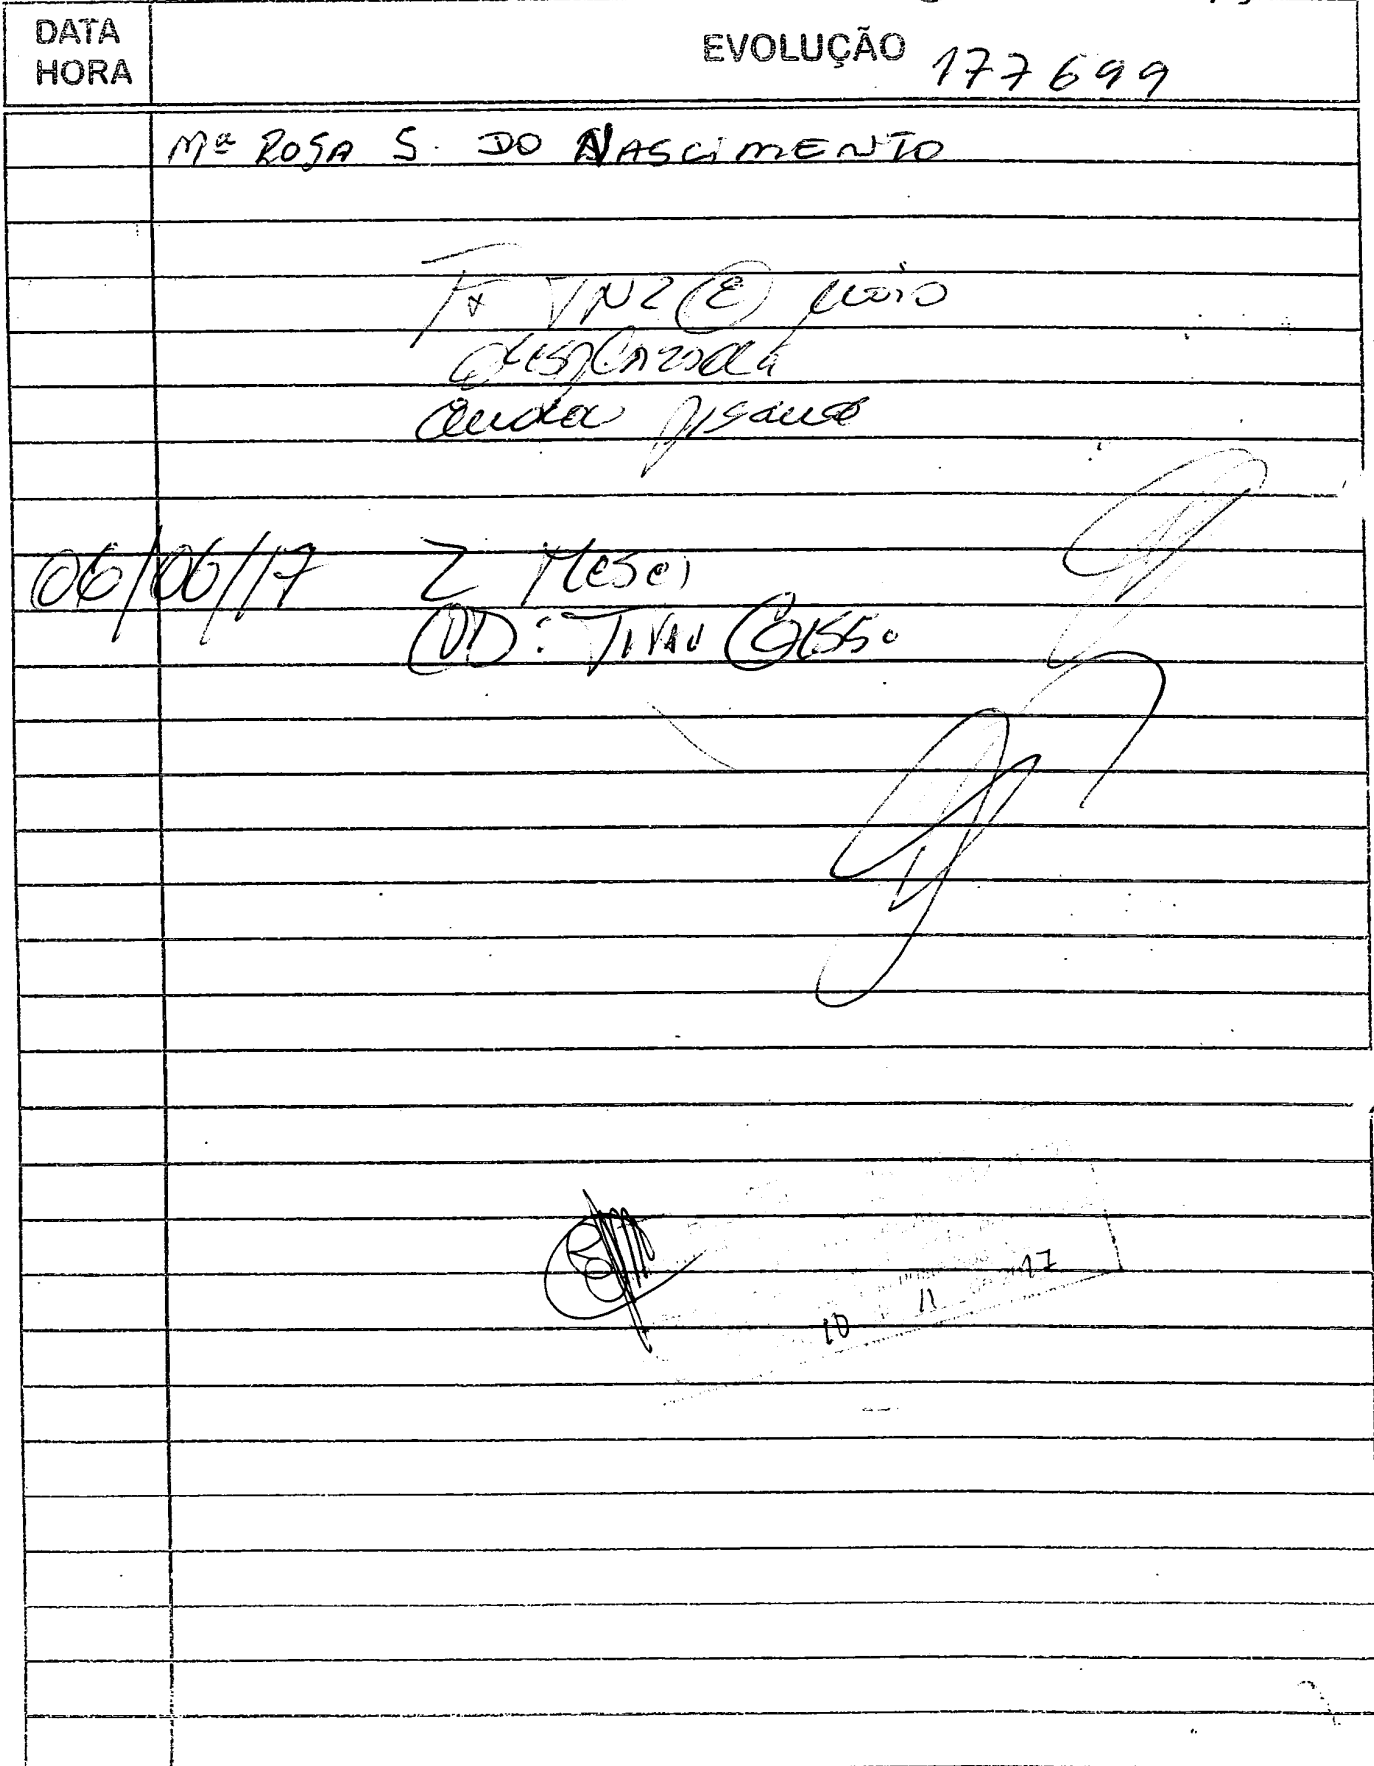 DATA
HORA
EVOLUÇÃO 177699
Mª ROSA S. DO NASCIMENTO
Fx TNZ (E) não
desplazada
06/06/17 2 Meses
CD: TIRAR GESSO
10 11 17